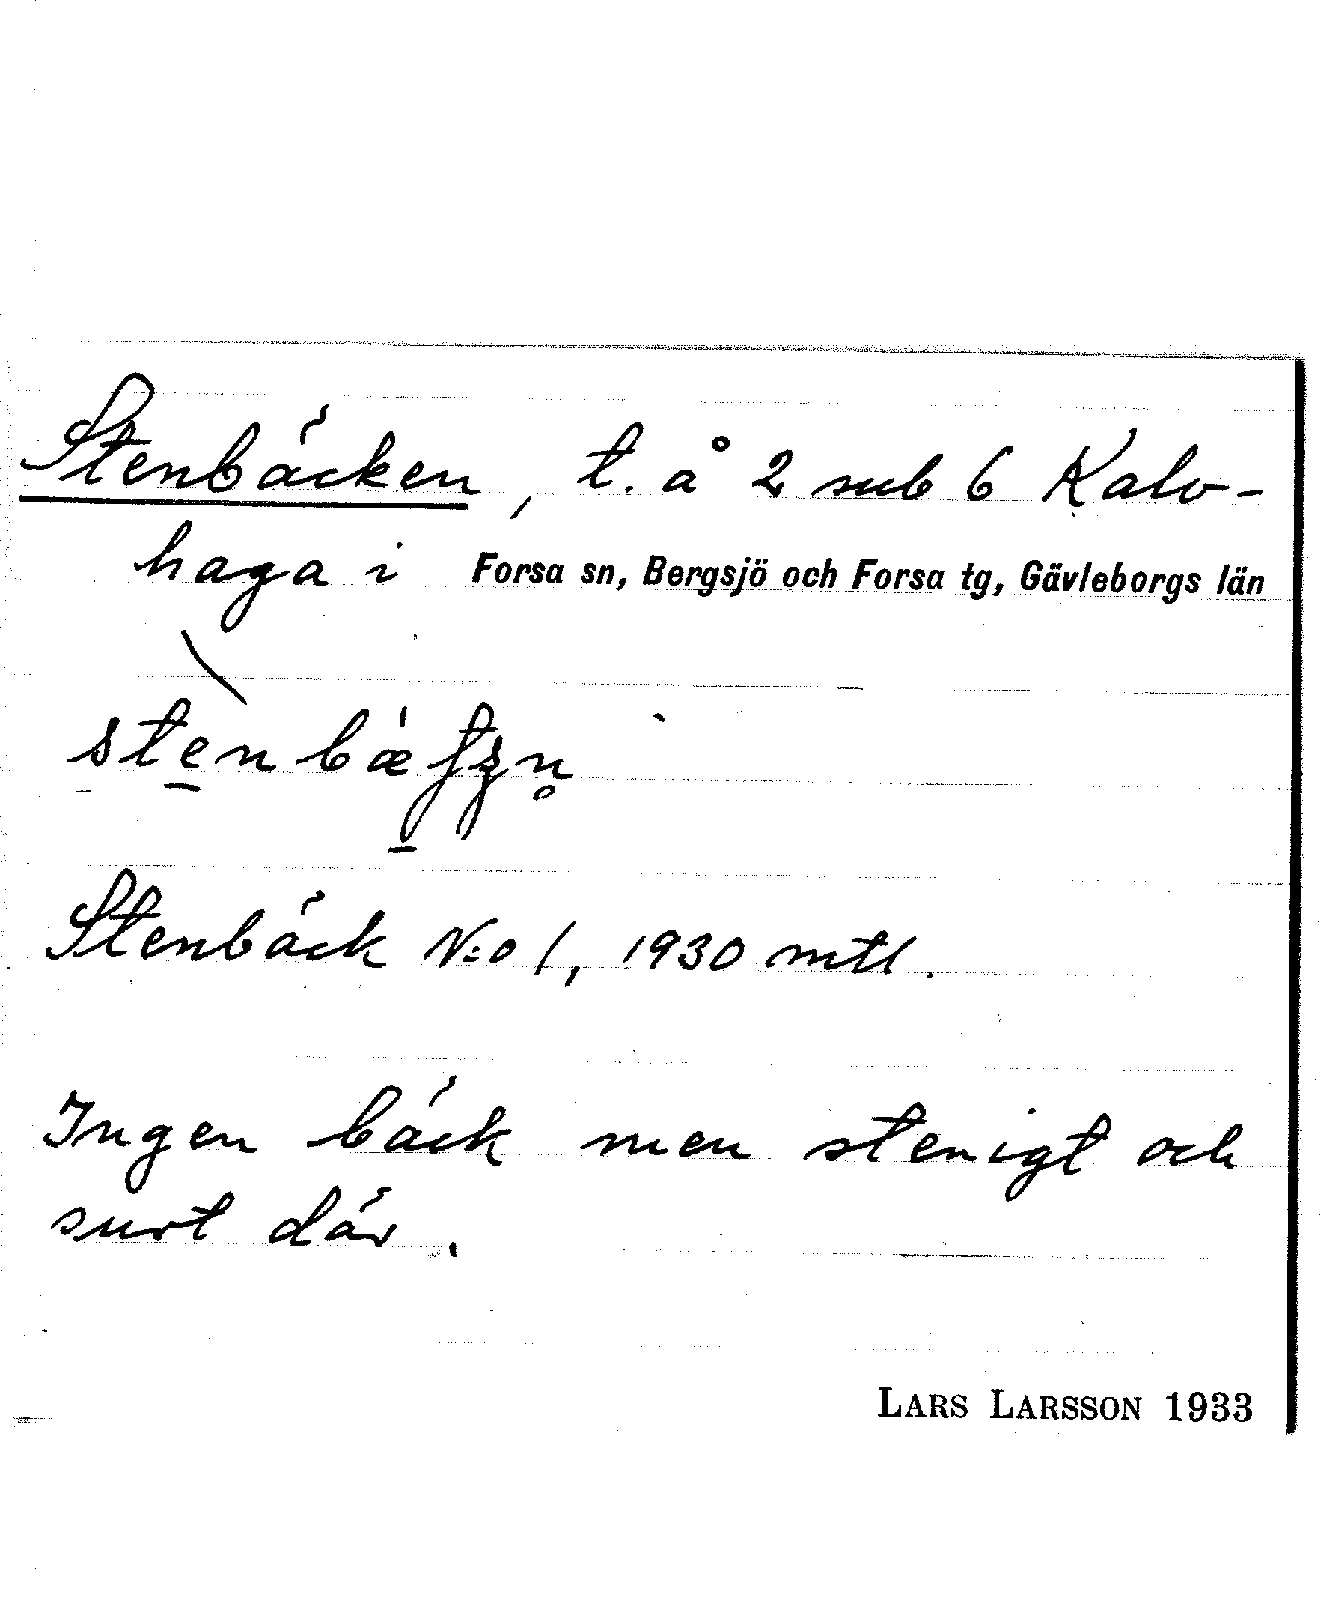 Stenbäcken, t. å 2 sub 6 Kalv-
haga i Forsa sn, Bergsjö och Forsa tg, Gävleborgs län
Stenbäck N:o 1, 1930 mtl.
Ingen bäck men stenigt och
surt där.
LARS LARSSON 1933